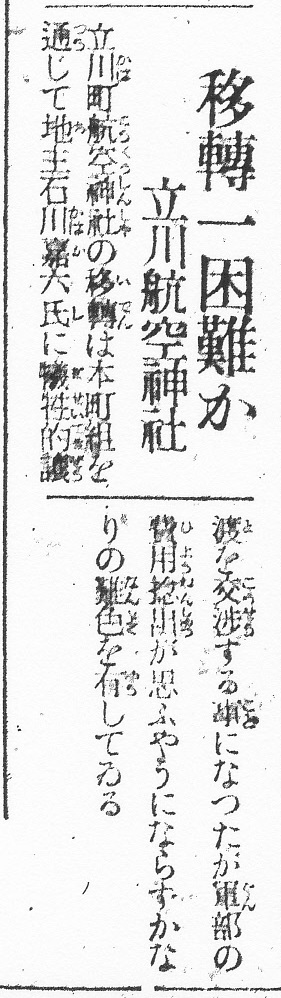 移轉一困難か
立川航空神社
立川町航空神社の移轉は本町組を
通じて地主石川嘉六氏に犠牲的讓
渡を交渉する事になつたが軍部の
費用捻出が思ふやうにならずかな
りの難色を有してゐる